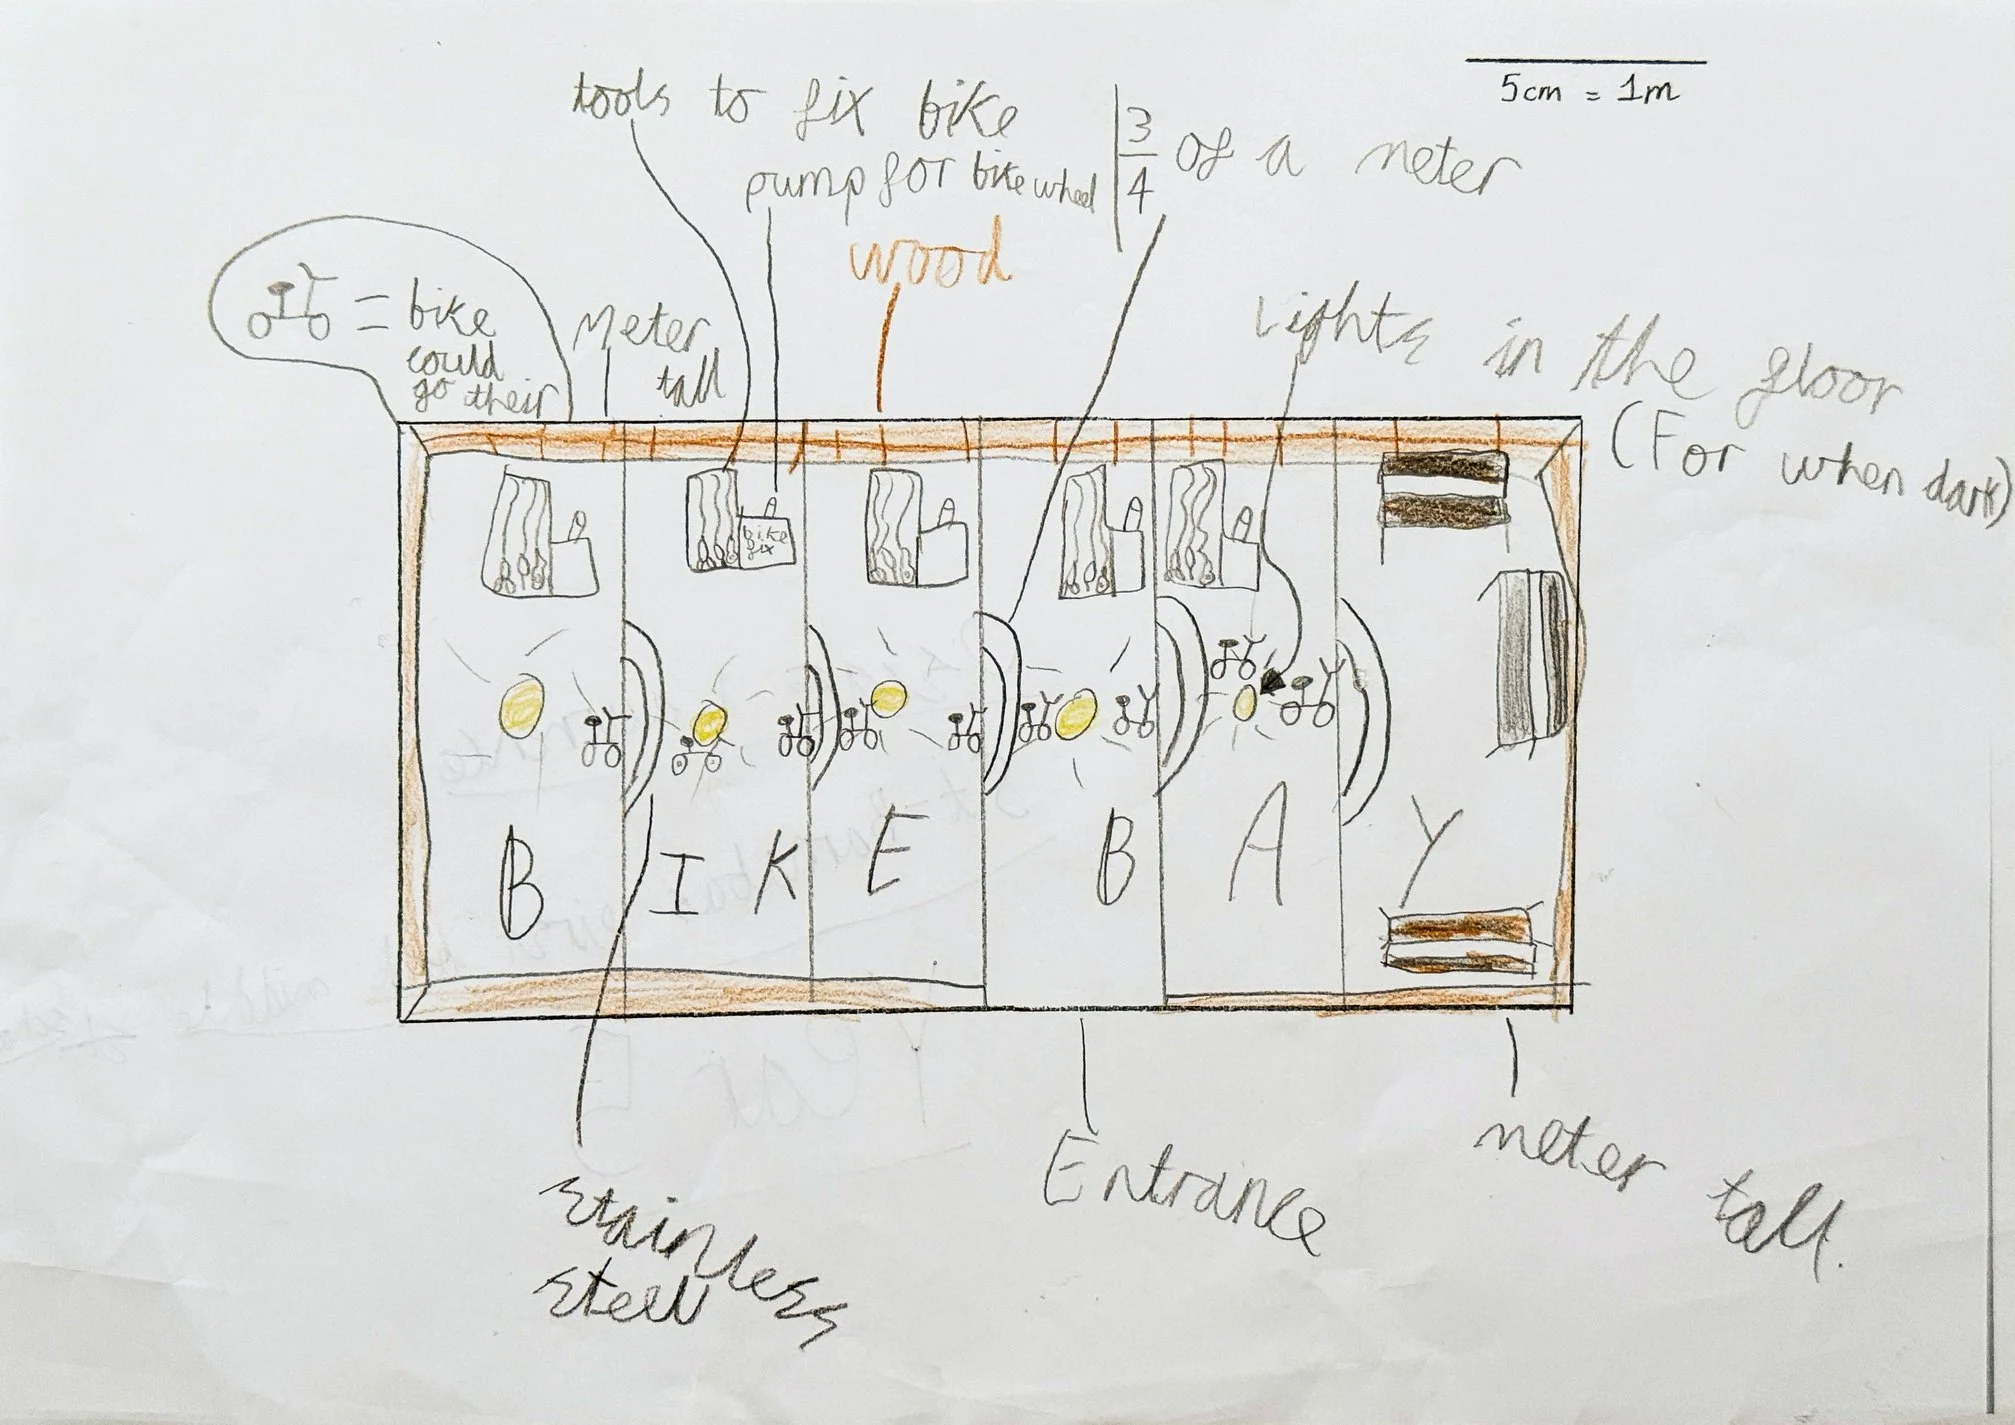 5cm = 1m
tools to fix bike
pump for bike wheel
3/4 of a meter
wood
bike
could
go their
Meter
tall
Lights in the floor
(For when dark)
bike
fix
B I K E B A Y
stainless
steel
Entrance
meter tall.